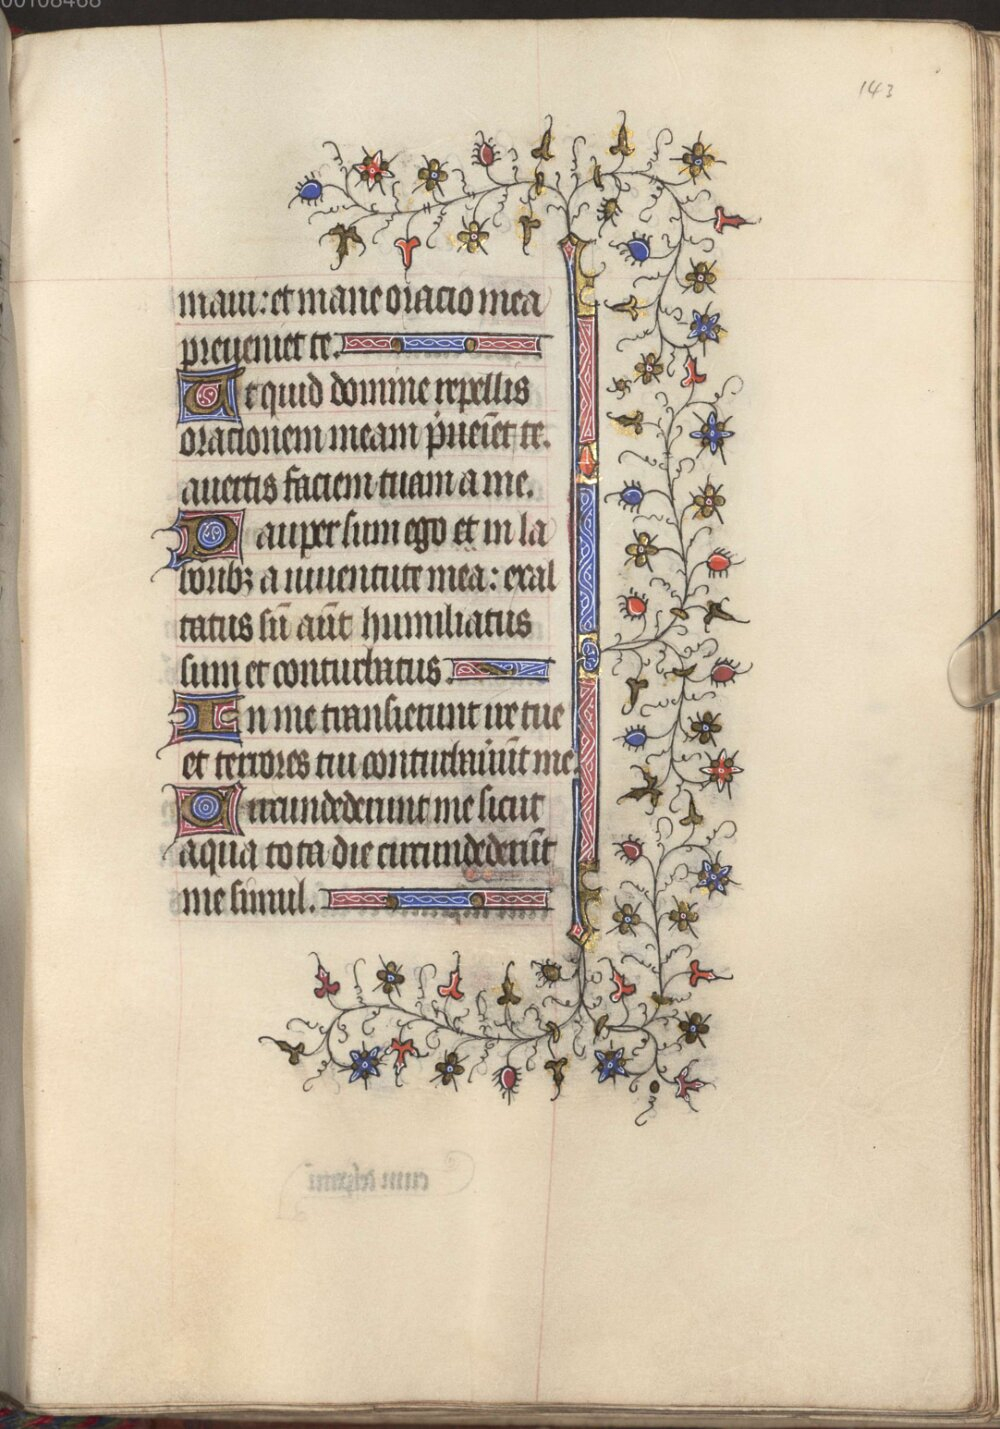 00108468
143
maui: et mane oracio mea
preueniet te.
Ut quid domine repellis
orationem meam
auertis faciem tuam a me.
Pauper sum ego et in la
boribꝫ a iuuentute mea: exal
tatus sū aūt humiliatus
sum et conturbatus.
In me transierunt ire tue
et terrores tui me.
Circundederunt me sicut
aqua tota die circundederūt
me simul.